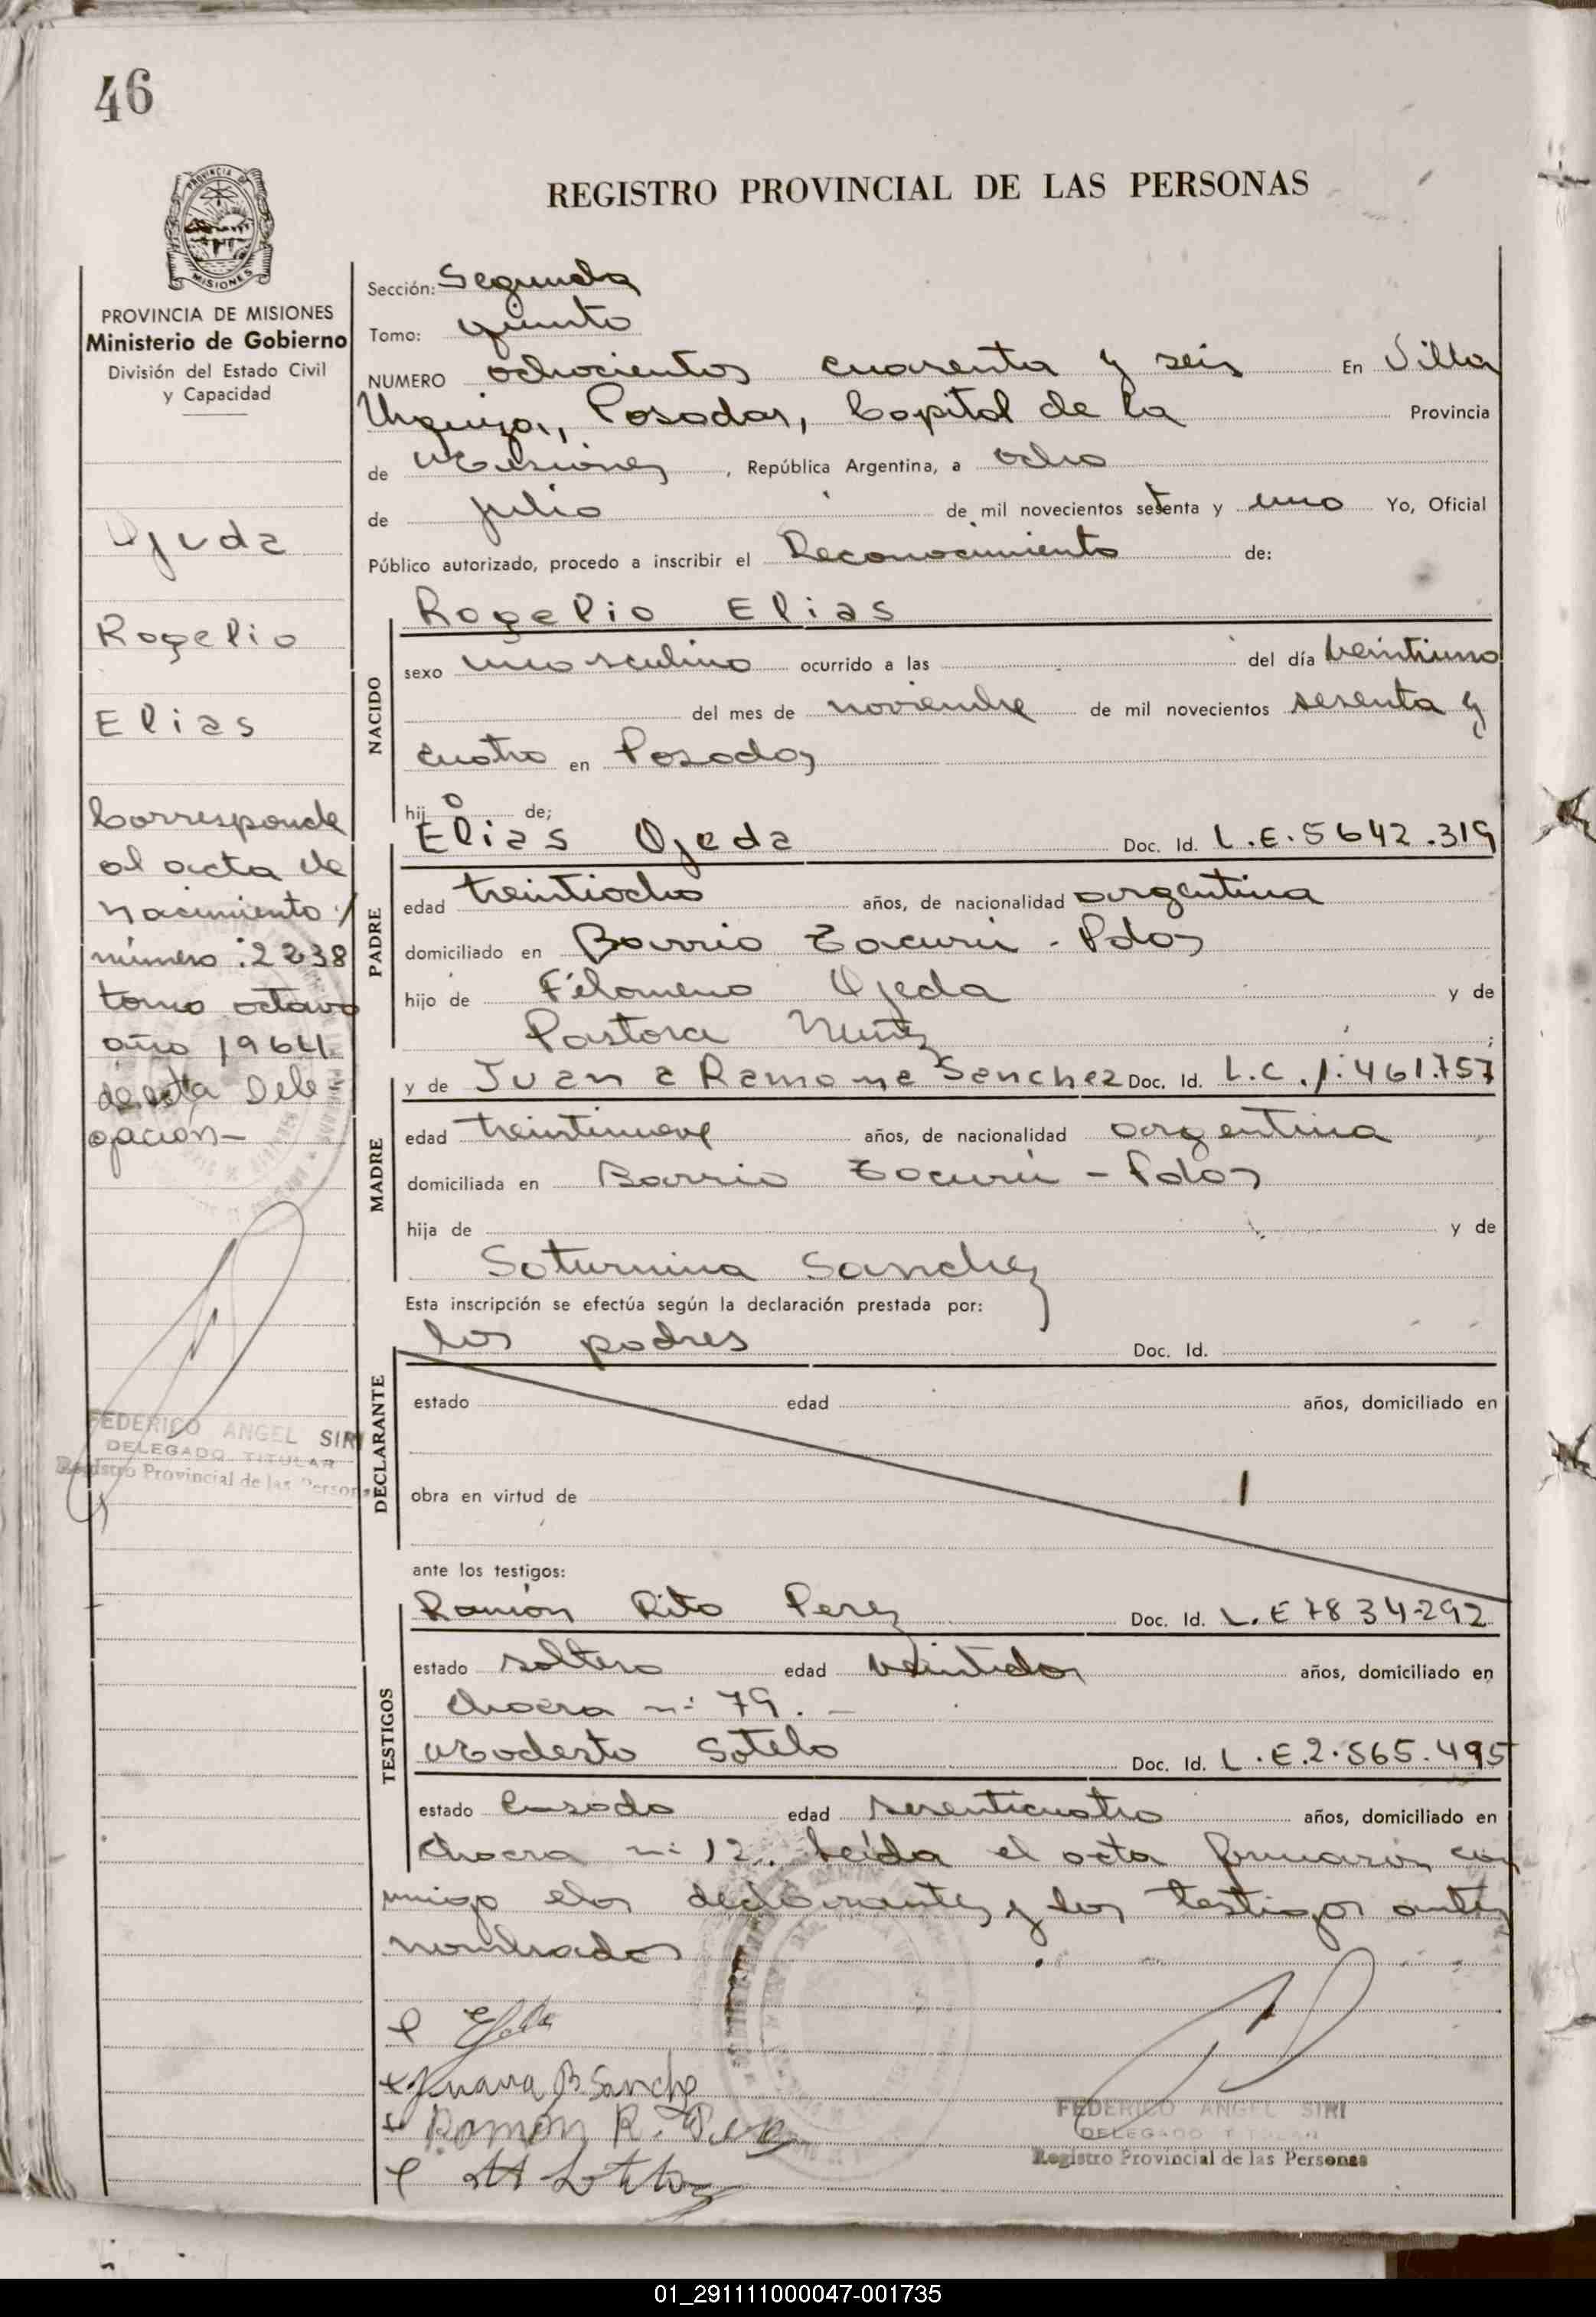 46
PROVINCIA DE
MISIONES
REGISTRO PROVINCIAL DE LAS PERSONAS
PROVINCIA DE MISIONES
Ministerio de Gobierno
División del Estado Civil
y Capacidad
Ojeda
Rogelio
Elias
Corresponde
al acta de
nacimiento /
número : 2238
tomo octavo
año 1964
de esta Dele
gación -
FEDERICO ANGEL SIRI
DELEGADO TITULAR
Registro Provincial de las Personas
Sección: Segunda
Tomo: quinto
NUMERO ochocientos cuarenta y seis En Villa
Urquiza, Posadas, Capital de la Provincia
de Misiones , República Argentina, a ocho
de julio de mil novecientos setenta y uno Yo, Oficial
Público autorizado, procedo a inscribir el Reconocimiento de:
NACIDO
Rogelio Elias
sexo masculino ocurrido a las del día veintiuno
del mes de noviembre de mil novecientos sesenta y
cuatro en Posadas
hijo de;
PADRE
Elias Ojeda Doc. Id. L.E. 5642.319
edad treintiocho años, de nacionalidad argentina
domiciliado en Barrio Tacurú - Pdas
hijo de Filomeno Ojeda y de
Pastora Nuñez ;
MADRE
y de Juana Ramona Sanchez Doc. Id. L.C. 1.461.757
edad treintinueve años, de nacionalidad argentina
domiciliada en Barrio Tacurú - Pdas
hija de y de
Saturnina Sanchez
Esta inscripción se efectúa según la declaración prestada por:
DECLARANTE
los padres Doc. Id.
estado edad años, domiciliado en
obra en virtud de
ante los testigos:
TESTIGOS
Ramón Rito Perez Doc. Id. L.E 7834292
estado soltero edad veintidos años, domiciliado en
Chacra n: 79. -
Modesto Sotelo Doc. Id. L.E. 2.565.495
estado Casado edad sesenticuatro años, domiciliado en
Chacra n: 12. Leída el acta firmaron con
migo los declarantes y los testigos antes
nombrados
Juana B. Sanchez
Ramón R. Perez
FEDERICO ANGEL SIRI
DELEGADO TITULAR
Registro Provincial de las Personas
01_291111000047-001735